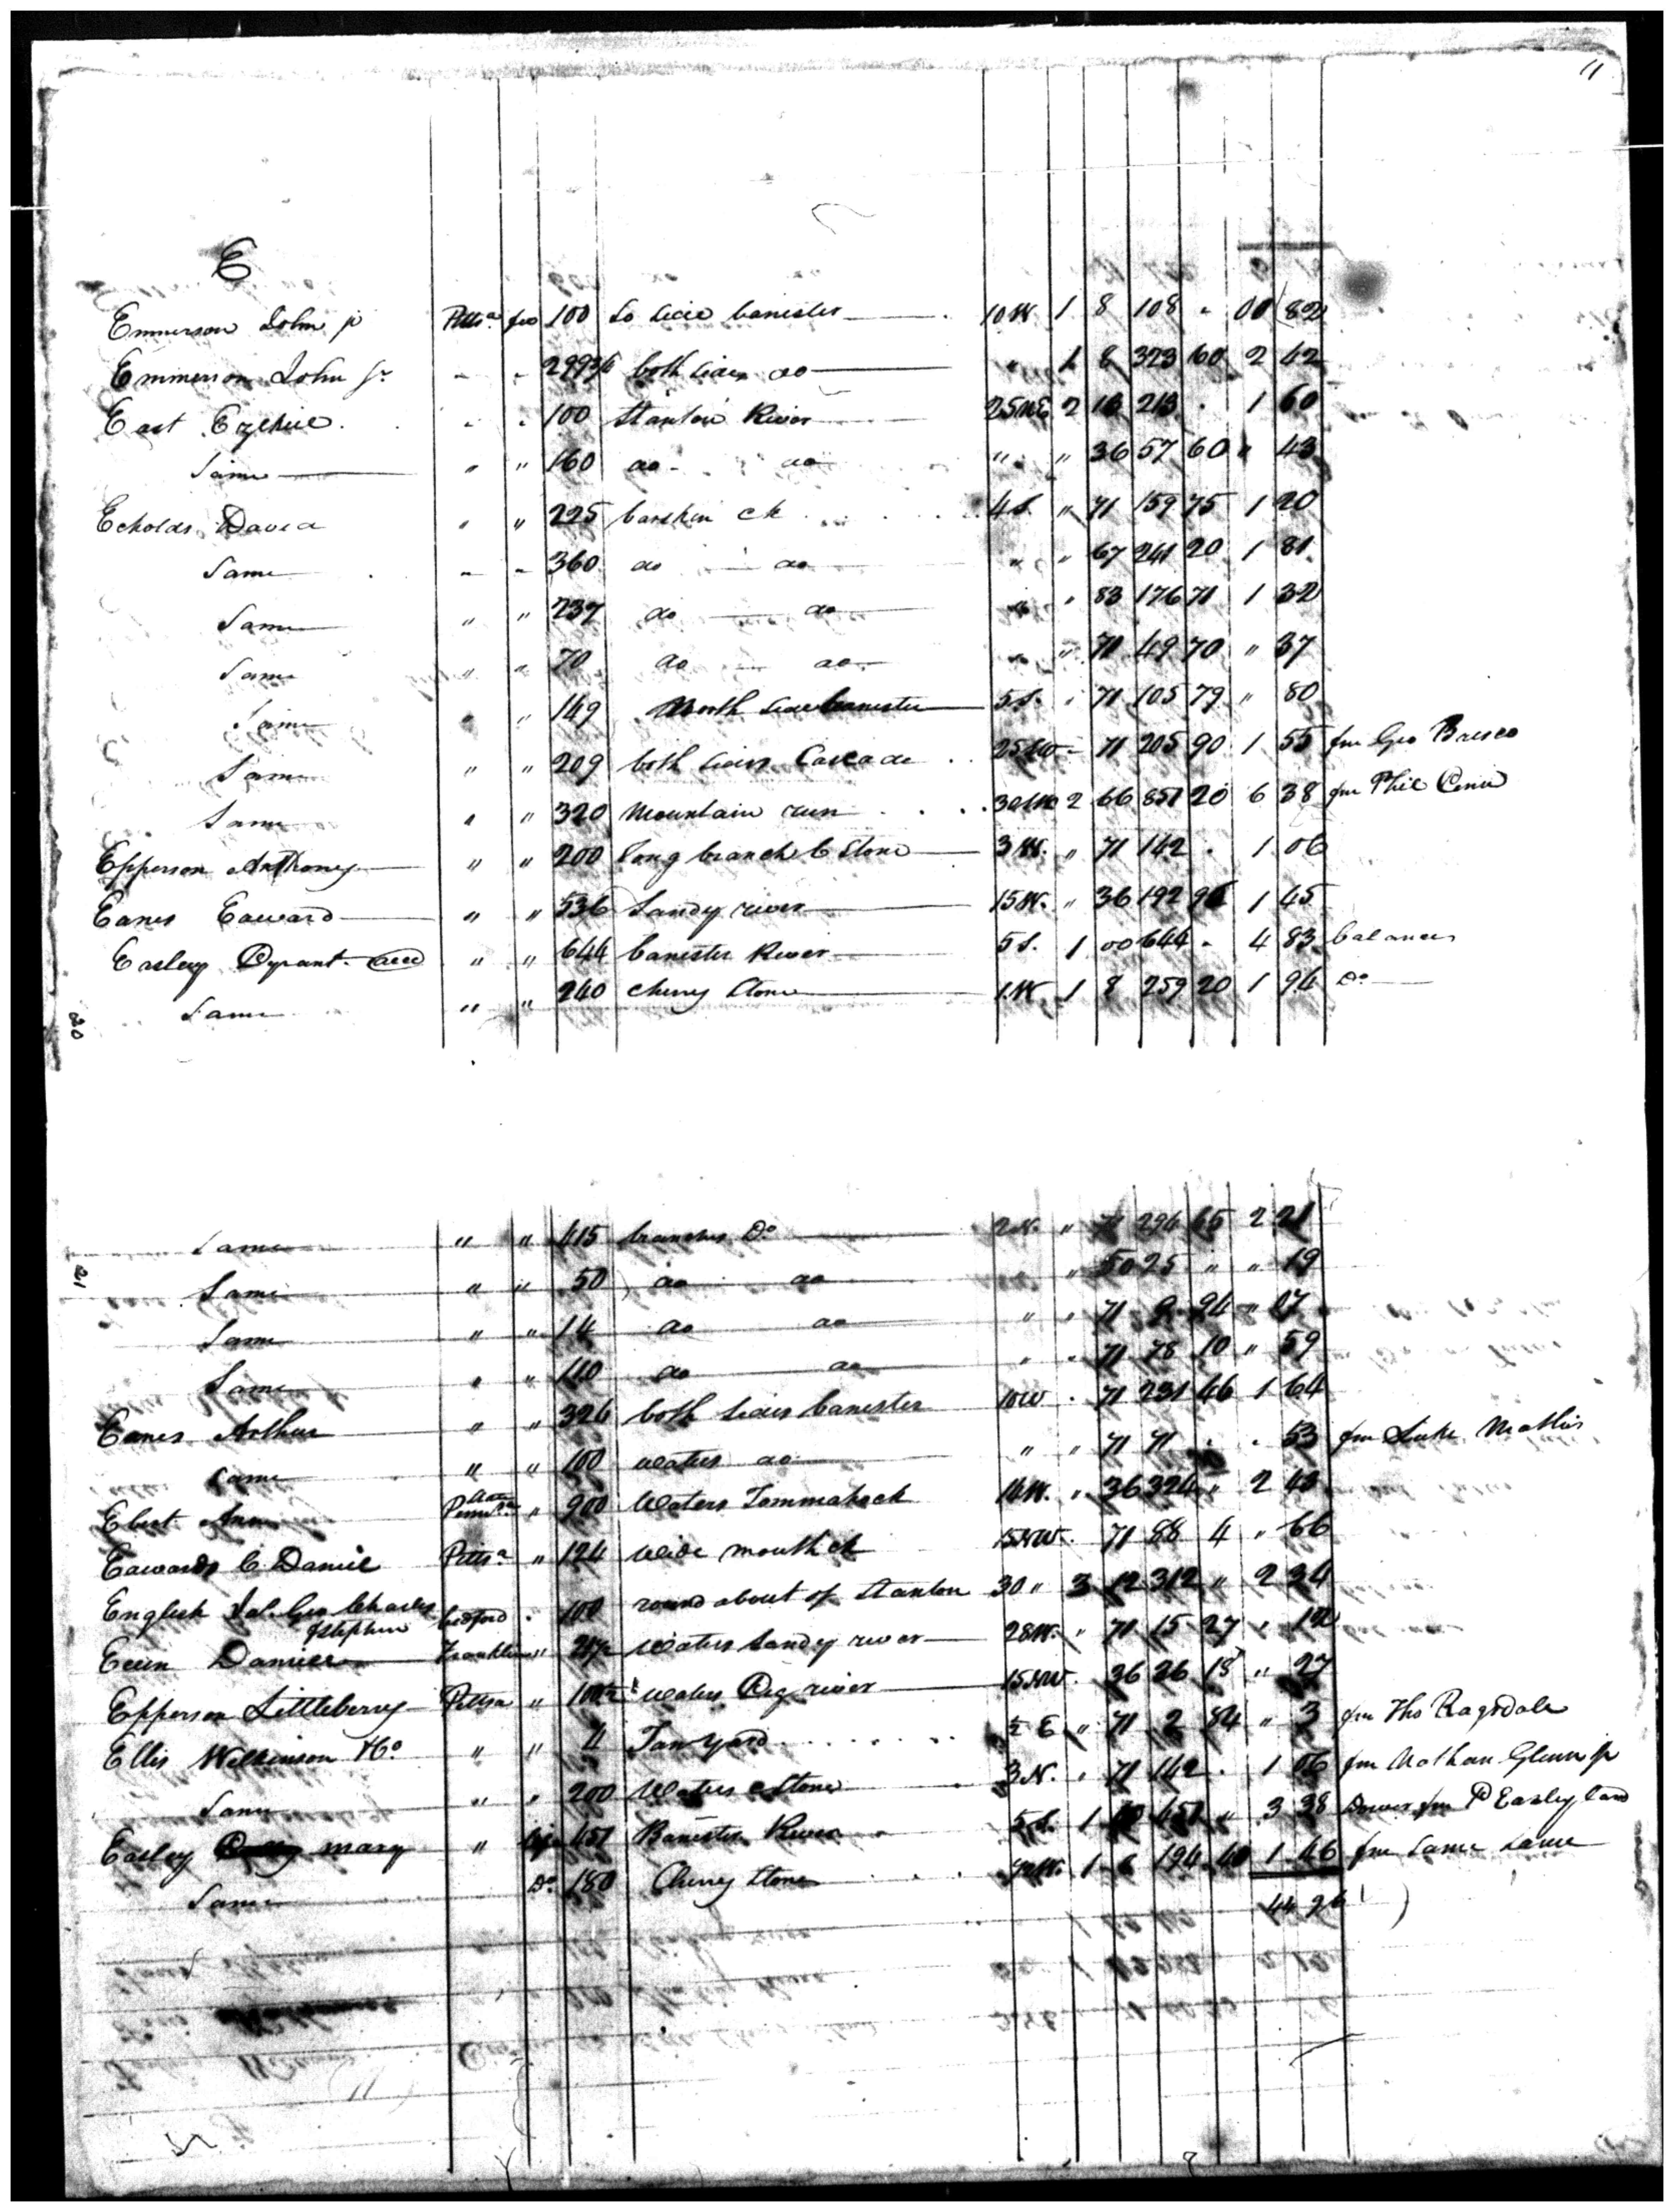 11
E
Emmerson John jr Pitts.a fee 100 So Side banister 10 W 1 8 108 " 00 82
Emmerson John Sr " " 299 3/4 both sides do " 1 8 323 60 2 42
East Ezekiel " " 100 Stanton River 25 NE 2 13 213 " 1 60
Same " " 160 do do " " 36 57 60 " 43
Echolds David " " 225 barskin ck 4 S. " 71 159 75 1 20
Same " " 360 do do " " 67 241 20 1 81
Same " " 237 do do " " 83 176 71 1 32
Same " " 70 do do " " 71 49 70 " 37
Same " " 149 North side banister 5 S. " 71 105 79 " 80
Same " " 209 both sides Cascade 25 SW " 71 205 90 1 55 fm Geo
Same " " 320 Mountain run 30 2 66 851 20 6 38 fm Phil
Epperson Anthony " " 200 long branch C Stone 3 W. " 71 142 " 1 06
Eanes Edward " " 536 Sandy river 15 W. " 36 192 96 1 45
Easley Pyrant decd " " 644 banister River 5 S. 1 00 644 " 4 83 balance
Same " " 240 cherry Stone 1 W 1 8 259 20 1 94 Do
20
21
Same " " 415 branches Do 2 N. " 71 294 65 2 21
Same " " 50 do do " 50 25 " " 19
Same " " 14 do do " " 71 9 94 " 07
Same " " 110 do do " " 71 78 10 " 59
Eanes Arthur " " 326 both sides banister 10 W " 71 231 46 1 64
Same " " 100 waters do " " 71 71 " " 53 fm Luke Mathis
Ebert Ann " 900 Waters Tommahack 14 W. " 36 324 " 2 43
Edwards C. Daniel Pittsa " 124 wide mouth ck 15 NW " 71 88 4 " 66
English Geo Charles
& Stephen bedford " 100 round about of Stanton 30 " 3 12 312 " 2 34
Daniel Franklin " 21 1/2 Waters Sandy river 28 W. " 71 15 27 " 12
Epperson Littleberry Pittsa " 100 1/2 waters Pig river 15 NW " 36 26 18 " 27
Ellis Wilkinson & Co " " 4 Tan yard 1/2 E " 71 2 84 " 3 fm Tho Ragsdale
Same " " 200 Waters c Stone 3 N. " 71 142 " 1 06 fm Nathan Glenn jr
Easley mary " life 451 Banister River 5 S. 1 00 451 " 3 38 Dower fm P Easley land
Same Do 180 Cherry Stone 1 194 40 1 46 fm Same Same
44 26